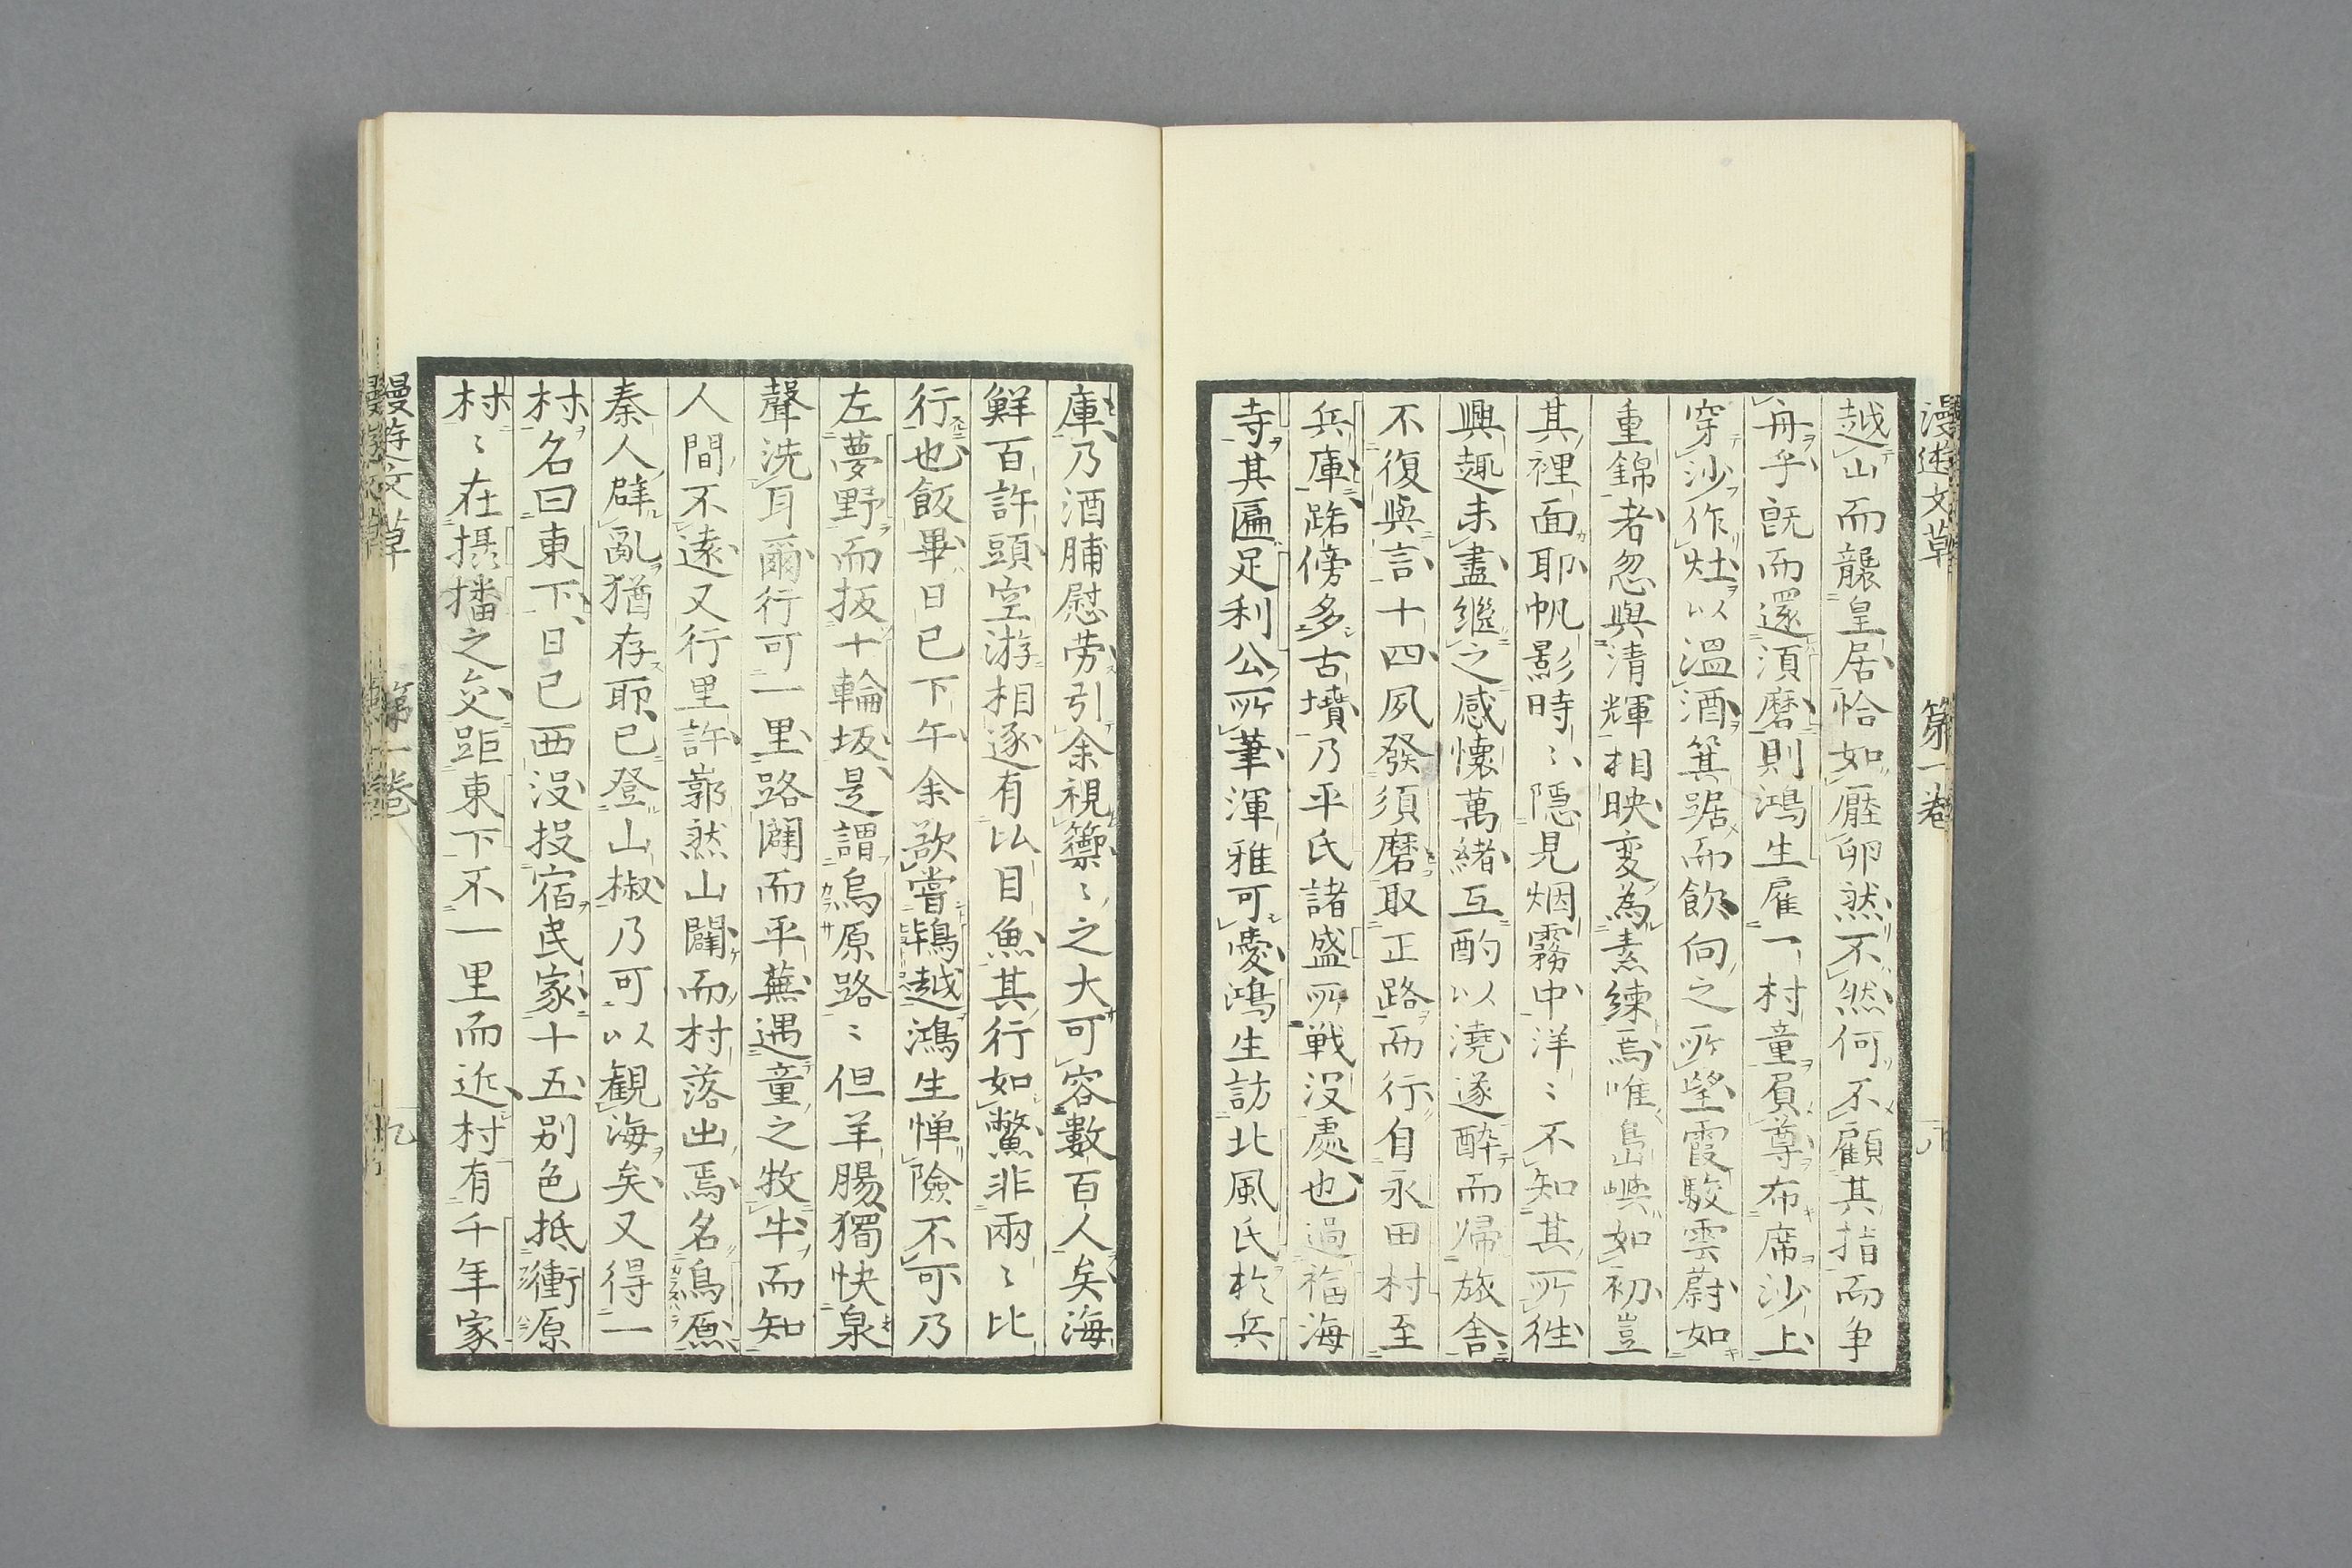 漫遊文草　第一卷
越山而襲皇居恰如壓卵然不然何不顧其指而争
舟乎既而還湏磨則鴻生雇一村童肩尊布席沙上
穿沙作灶以温酒箕踞而飲向之所望霞駿雲蔚如
重錦者忽與清輝相映变為素練焉唯島嶼如初豈
其裡面耶帆影時〻隠見烟霧中洋〻不知其所徃
興趣未盡継之感懷萬緒互酌以澆遂醉而帰旅舎
不復與言十四夙發須磨取正路而行自永田村至
兵庫路傍多古墳乃平氏諸盛所戦没處也過福海
寺其匾足利公所筆渾雅可愛鴻生訪北風氏於兵
庫乃酒脯慰勞引余視籞〻之大可容數百人矣海
鮮百許頭空游相逐有以目魚其行如鱉非兩〻比
行也飯畢日已下午余欲嘗鵯越鴻生惮險不可乃
左夢野而扳十輪坂是謂烏原路〻但羊腸獨快泉
聲洗耳爾行可一里路闢而平蕪遇童之牧牛而知
人間不遠又行里許郭然山闢而村落出焉名烏原
秦人辟亂猶存耶已登山椒乃可以観海矣又得一
村名曰東下日已西没投宿民家十五别色抵衝原
村〻在摂播之交距東下不一里而近村有千年家
漫遊文草　第一卷　九